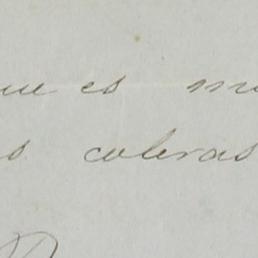 que es mu
s coleras